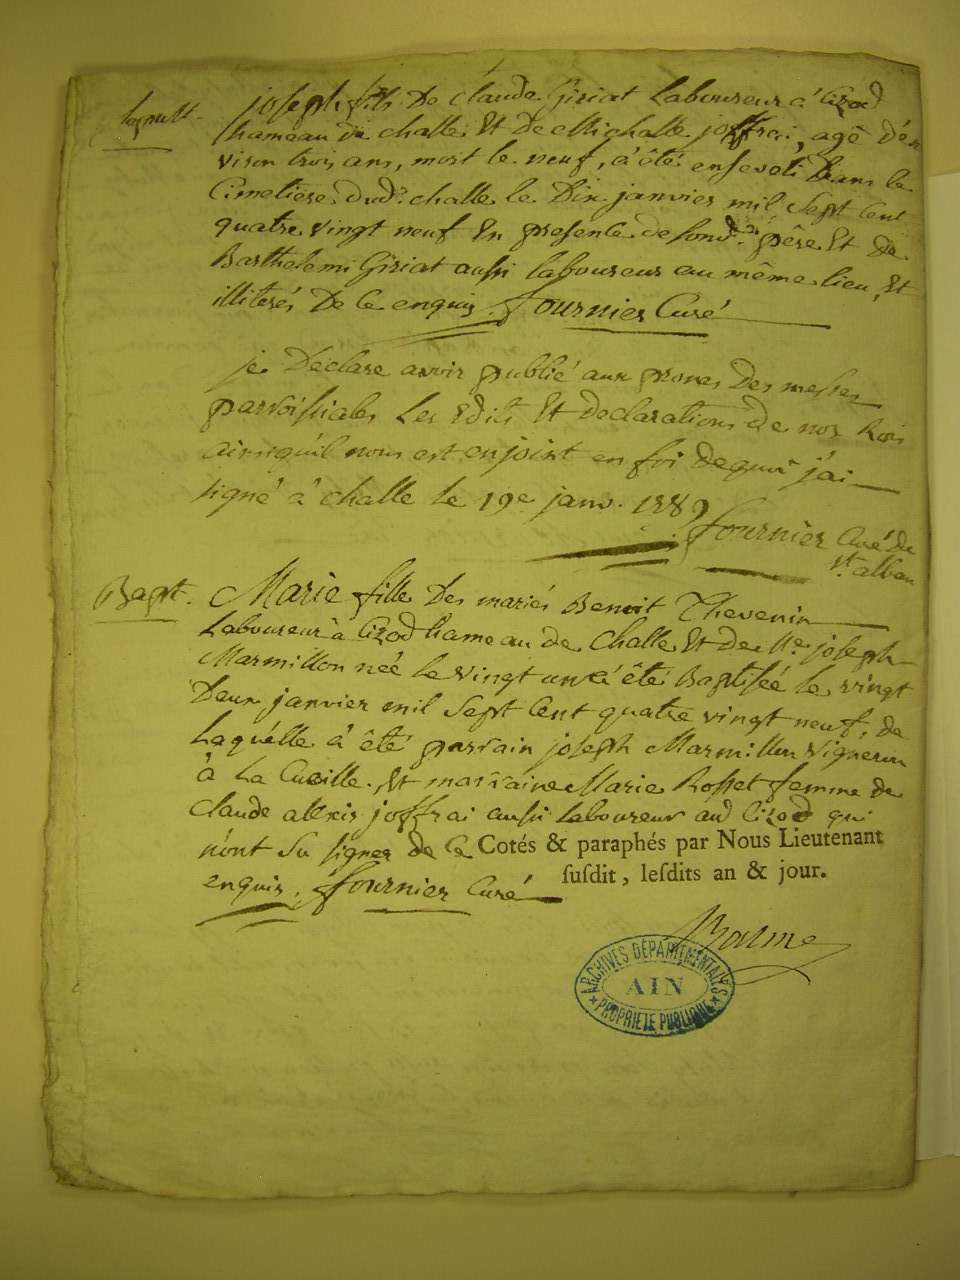 sepult.
joseph fils De claude Giriat Laboureur à Cizod
hameau de challe Et De Michalle joffrai, agé d'en
viron trois ans, mort le neuf, à été enseveli Dans le
Cimetiere dud.t challe le Dix janvier mil sept Cent
quatre vingt neuf En presence de sond.t père Et De
Barthelemi Giriat aussi laboureur au même lieu, Et
illiterés De ce enquis. fournier Curé
je Declare avoir publié aux prones Des messes
parroissiales Les Edits Et declarations de nos Rois
ainsiqu'il nous est enjoint en foi dequoi j'ai
signé à challe le 19e janv. 1789
fournier Curé de
st alban
Bapt.
Marie fille Des mariés Benoit Thevenin
Laboureur à Cizod hameau de Challe Et de Me joseph
Marmillon née le vingt un à été Baptisée le vingt
Deux janvier mil sept Cent quatre vingt neuf, de
Laquélle à été parrain joseph Marmillon vigneron
à La Cueille. Et marraine Marie Rosset femme de
claude alexis joffrai aussi laboureur aud Cizod qui
n'ont su signer de ce
enquis. fournier Curé
Cotés & paraphés par Nous Lieutenant
susdit, lesdits an & jour.
Balme
ARCHIVES DÉPARTEMENTALES
AIN
PROPRIETE PUBLIQUE